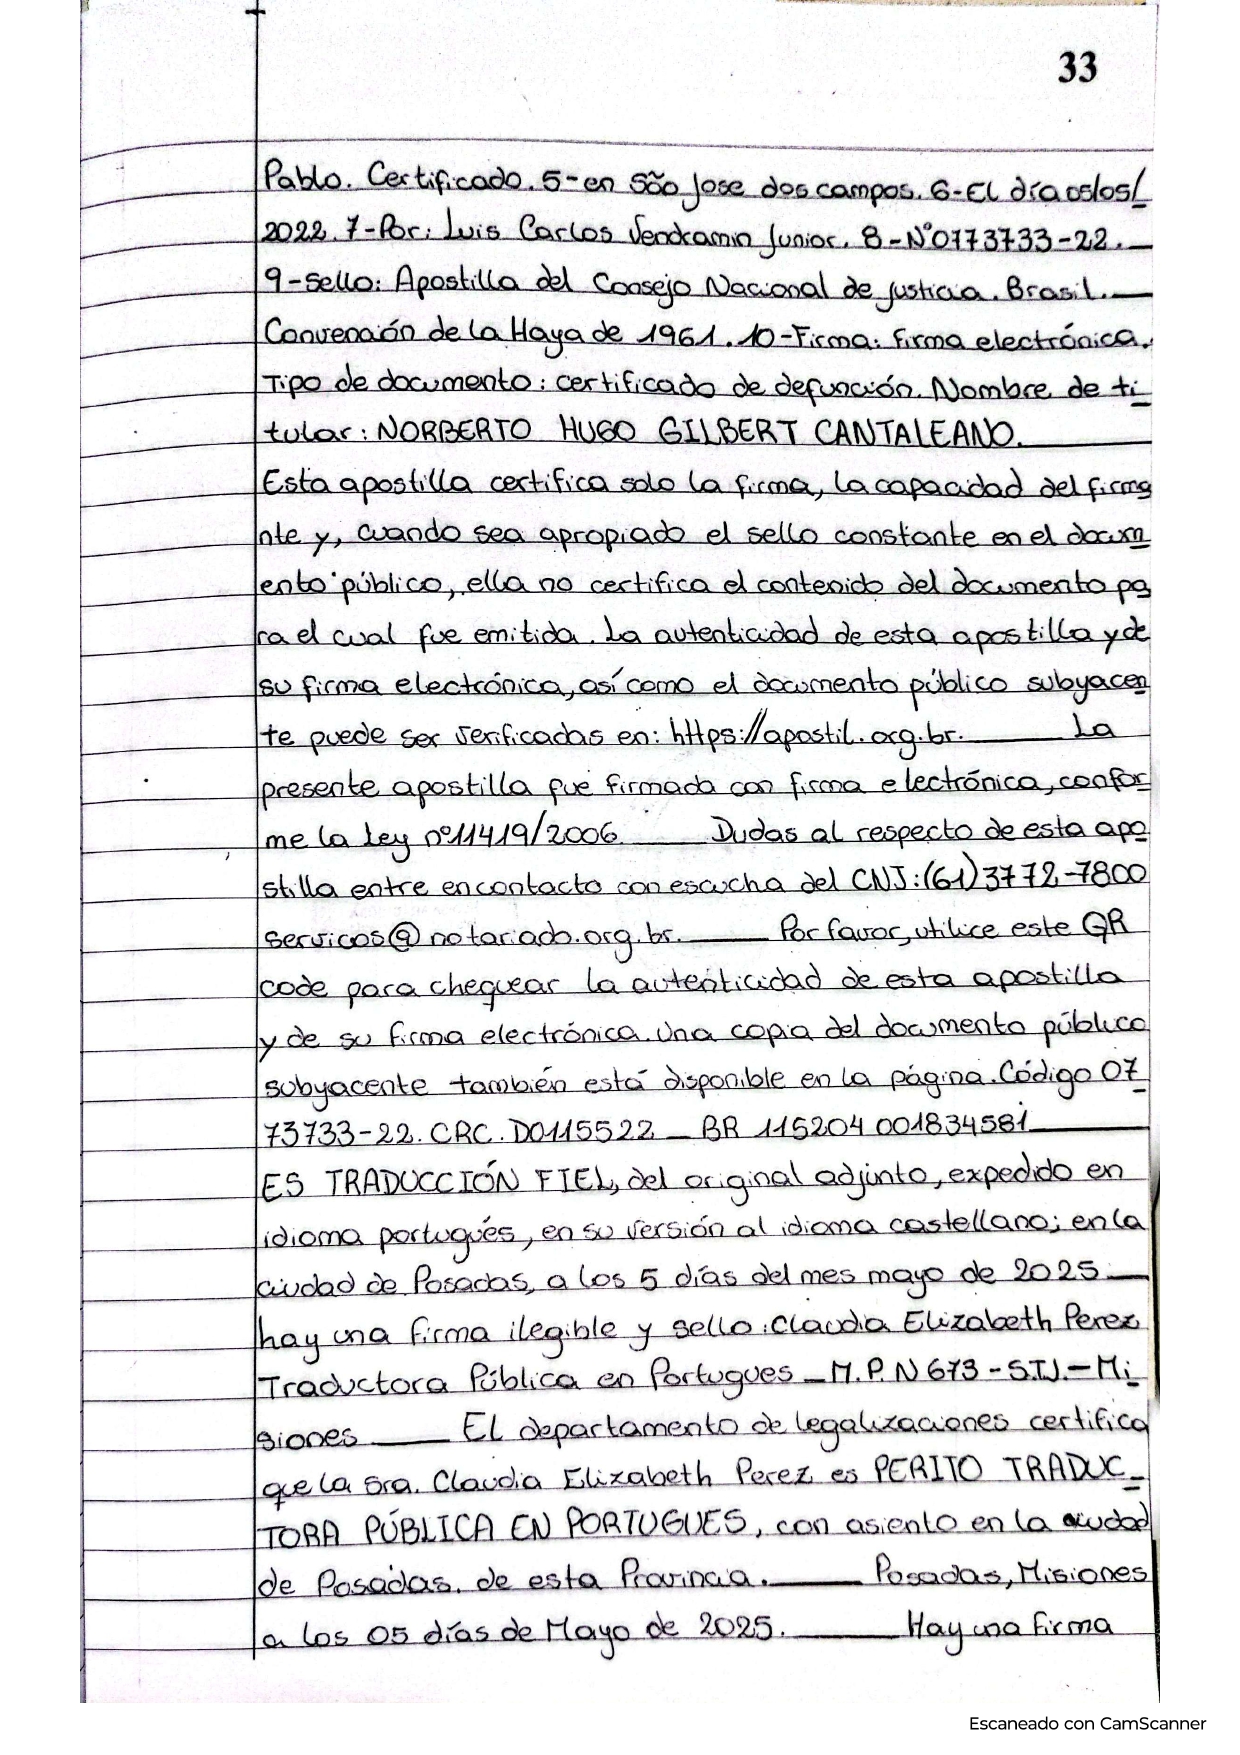 33
Pablo. Certificado. 5-en São Jose dos campos. 6-El día 05/05/
2022. 7-Por: Luis Carlos Vendramin Junior. 8-N°0773733-22.
9-sello: Apostilla del Consejo Nacional de justicia. Brasil.
Convención de la Haya de 1961. 10-Firma: firma electrónica.
Tipo de documento: certificado de defunción. Nombre de ti
tular: NORBERTO HUGO GILBERT CANTALEANO.
Esta apostilla certifica solo la firma, la capacidad del firma
nte y, cuando sea apropiado el sello constante en el docum
ento público, ella no certifica el contenido del documento pa
ra el cual fue emitida. La autenticidad de esta apostilla y de
su firma electrónica, así como el documento público subyacen
te puede ser verificadas en: https://apostil.org.br. La
presente apostilla fue firmada con firma electrónica, confor
me la Ley nº11419/2006. Dudas al respecto de esta apo
stilla entre en contacto con escucha del CNJ: (61)3772-7800
servicos@notariado.org.br. Por favor, utilice este QR
code para chequear la autenticidad de esta apostilla
y de su firma electrónica. Una copia del documento público
subyacente también está disponible en la página. Código 07
73733-22. CRC. D0115522 _ BR 115204 001834581
ES TRADUCCIÓN FIEL, del original adjunto, expedido en
idioma portugués, en su versión al idioma castellano; en la
ciudad de Posadas, a los 5 días del mes mayo de 2025
hay una firma ilegible y sello: Claudia Elizabeth Perez
Traductora Pública en Portugues _ M.P. N 673 - S.T.J. - Mi
siones El departamento de legalizaciones certifica
que la sra. Claudia Elizabeth Perez es PERITO TRADUC
TORA PÚBLICA EN PORTUGUES, con asiento en la ciudad
de Posadas. de esta Provincia. Posadas, Misiones
a los 05 días de Mayo de 2025. Hay una firma
Escaneado con CamScanner